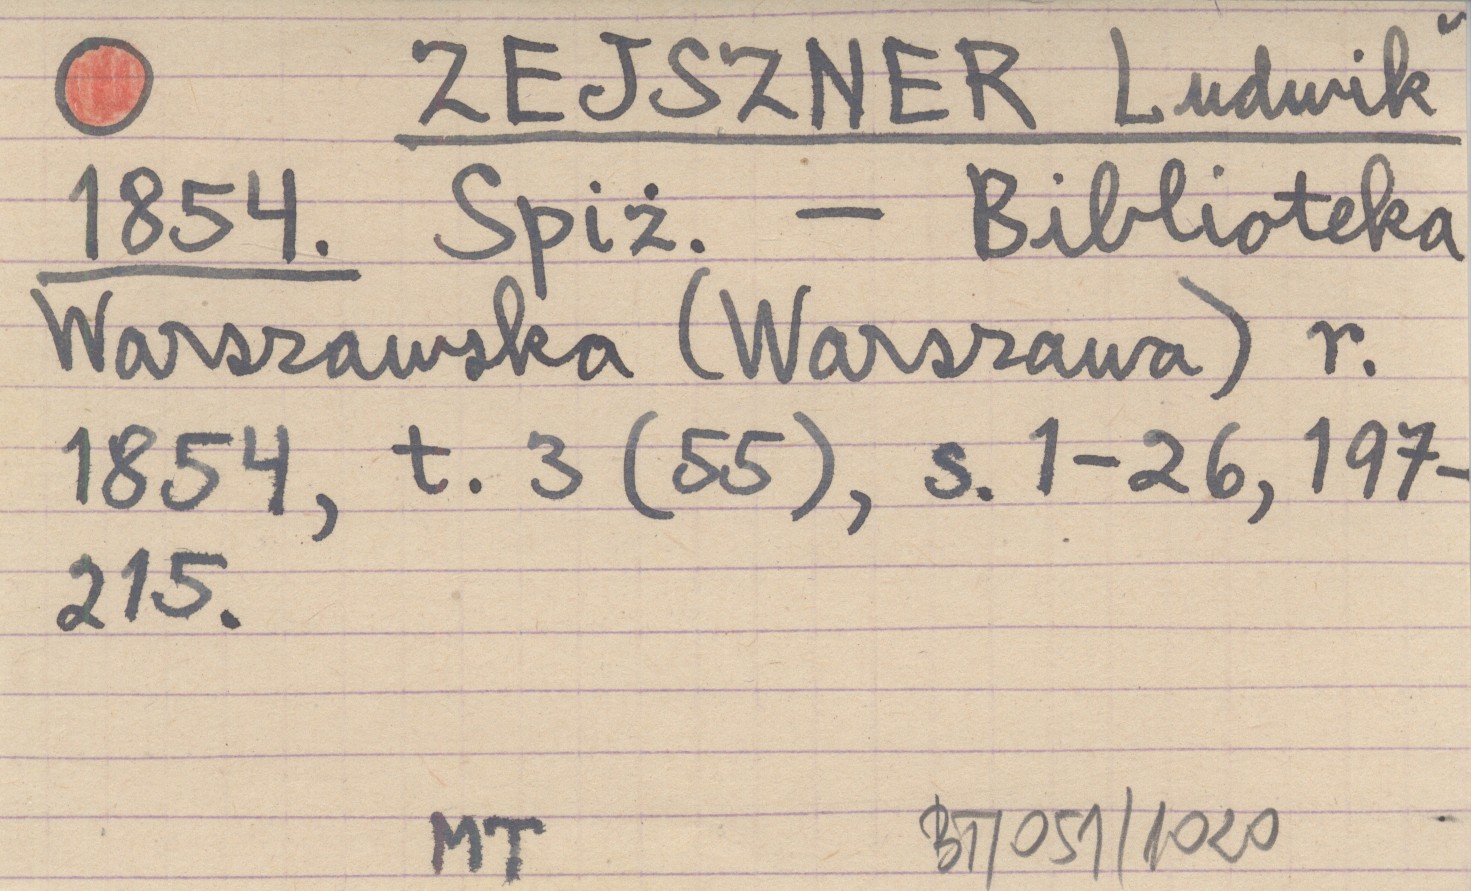 ZEJSZNER Ludwik
1854. Spiż. — Biblioteka
Warszawska (Warszawa) r.
1854, t. 3 (55), s. 1-26, 197-
215.
MT BT/051/1020